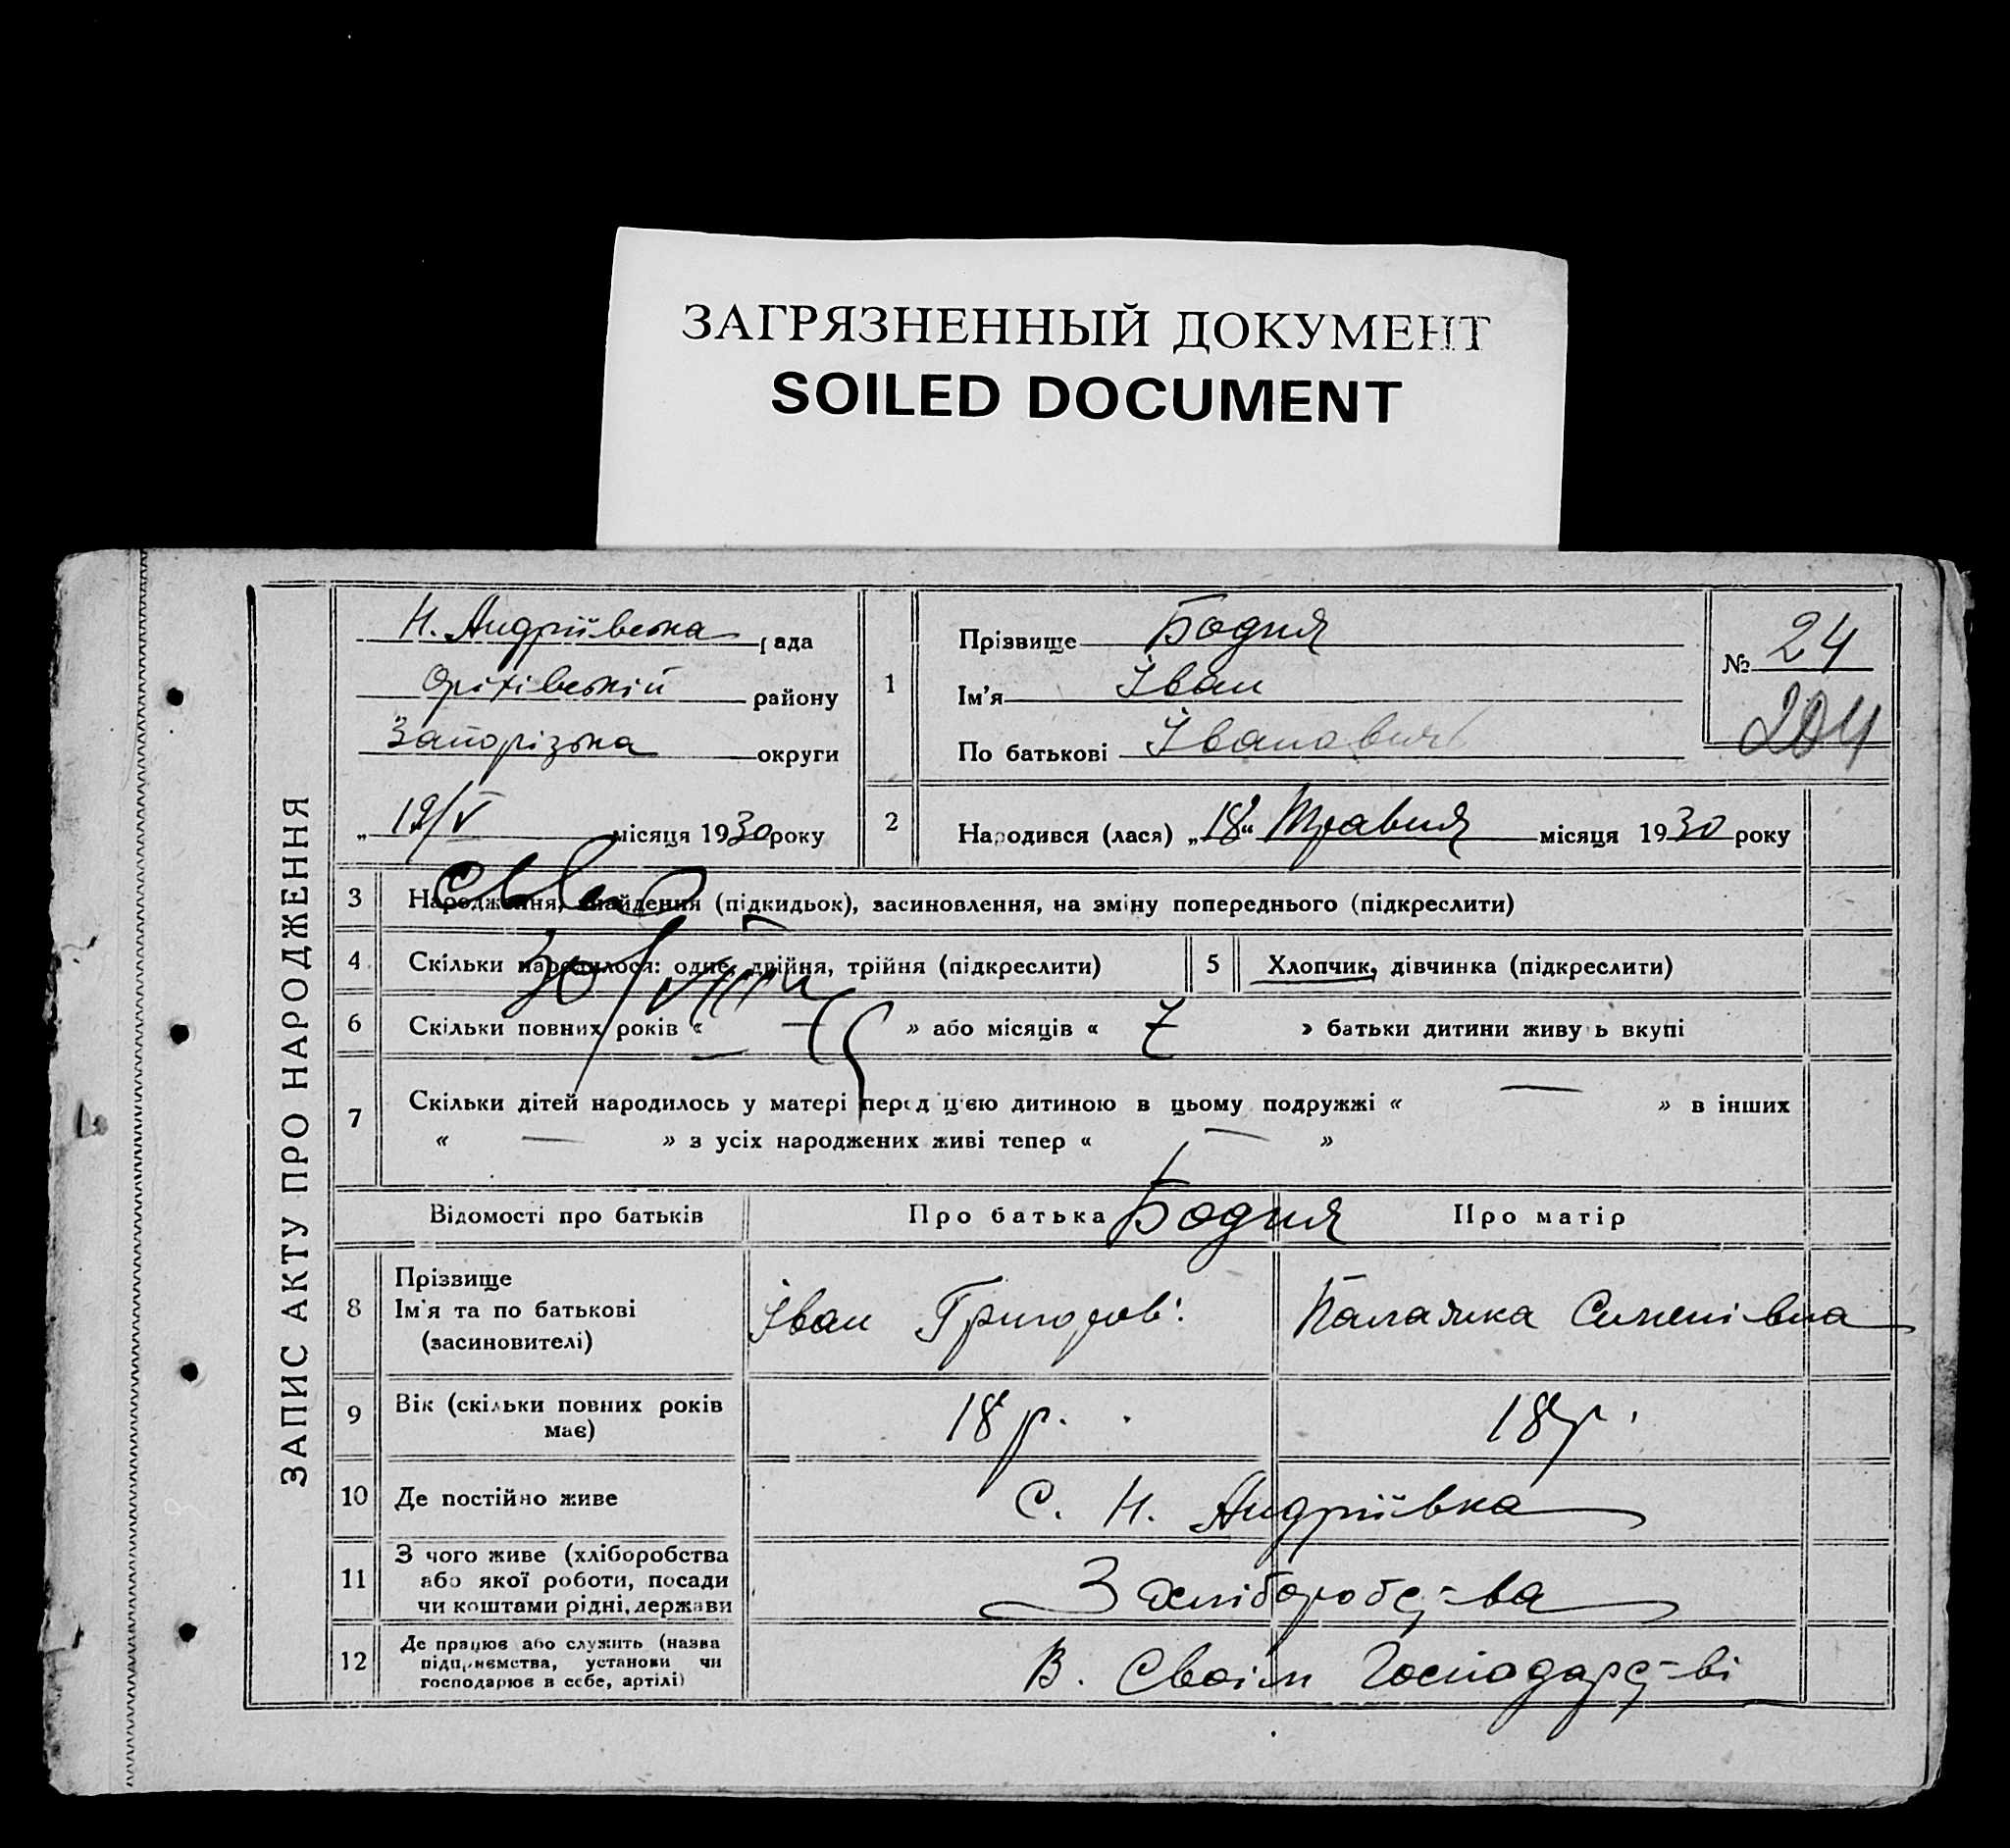 ЗАГРЯЗНЕННЫЙ ДОКУМЕНТ
SOILED DOCUMENT
ЗАПИС АКТУ ПРО НАРОДЖЕННЯ
Н. Андріївська рада
Оріхівській району
Запорізька округи
„ 19/V місяця 1930 року
1
Прізвище Бодня
Ім'я Іван
По батькові Іванович
№ 24
204
2 Народився (лася) „18“ Травня місяця 1930 року
3 Народження, знайдення (підкидьок), засиновлення, на зміну попереднього (підкреслити)
4 Скільки народилося: одне, двійня, трійня (підкреслити)
5 Хлопчик, дівчинка (підкреслити)
30/VIII
6 Скільки повних років « — » або місяців « 7 » батьки дитини живуть вкупі
7 Скільки дітей народилось у матері перед цією дитиною в цьому подружжі « — » в інших
« — » з усіх народжених живі тепер « — »
Відомості про батьків Про батька Про матір
Бодня
8 Прізвище
Ім'я та по батькові
(засиновителі)
Іван Григоров: Палажка Семенівна
9 Вік (скільки повних років
має)
18 р. 18 р.
10 Де постійно живе С. Н. Андріївка
11 З чого живе (хліборобства
або якої роботи, посади
чи коштами рідні, держави
З хліборобс-ва
12 Де працює або служить (назва
підприємства, установи чи
господарює в себе, артілі)
В. Своїм Господарс-ві